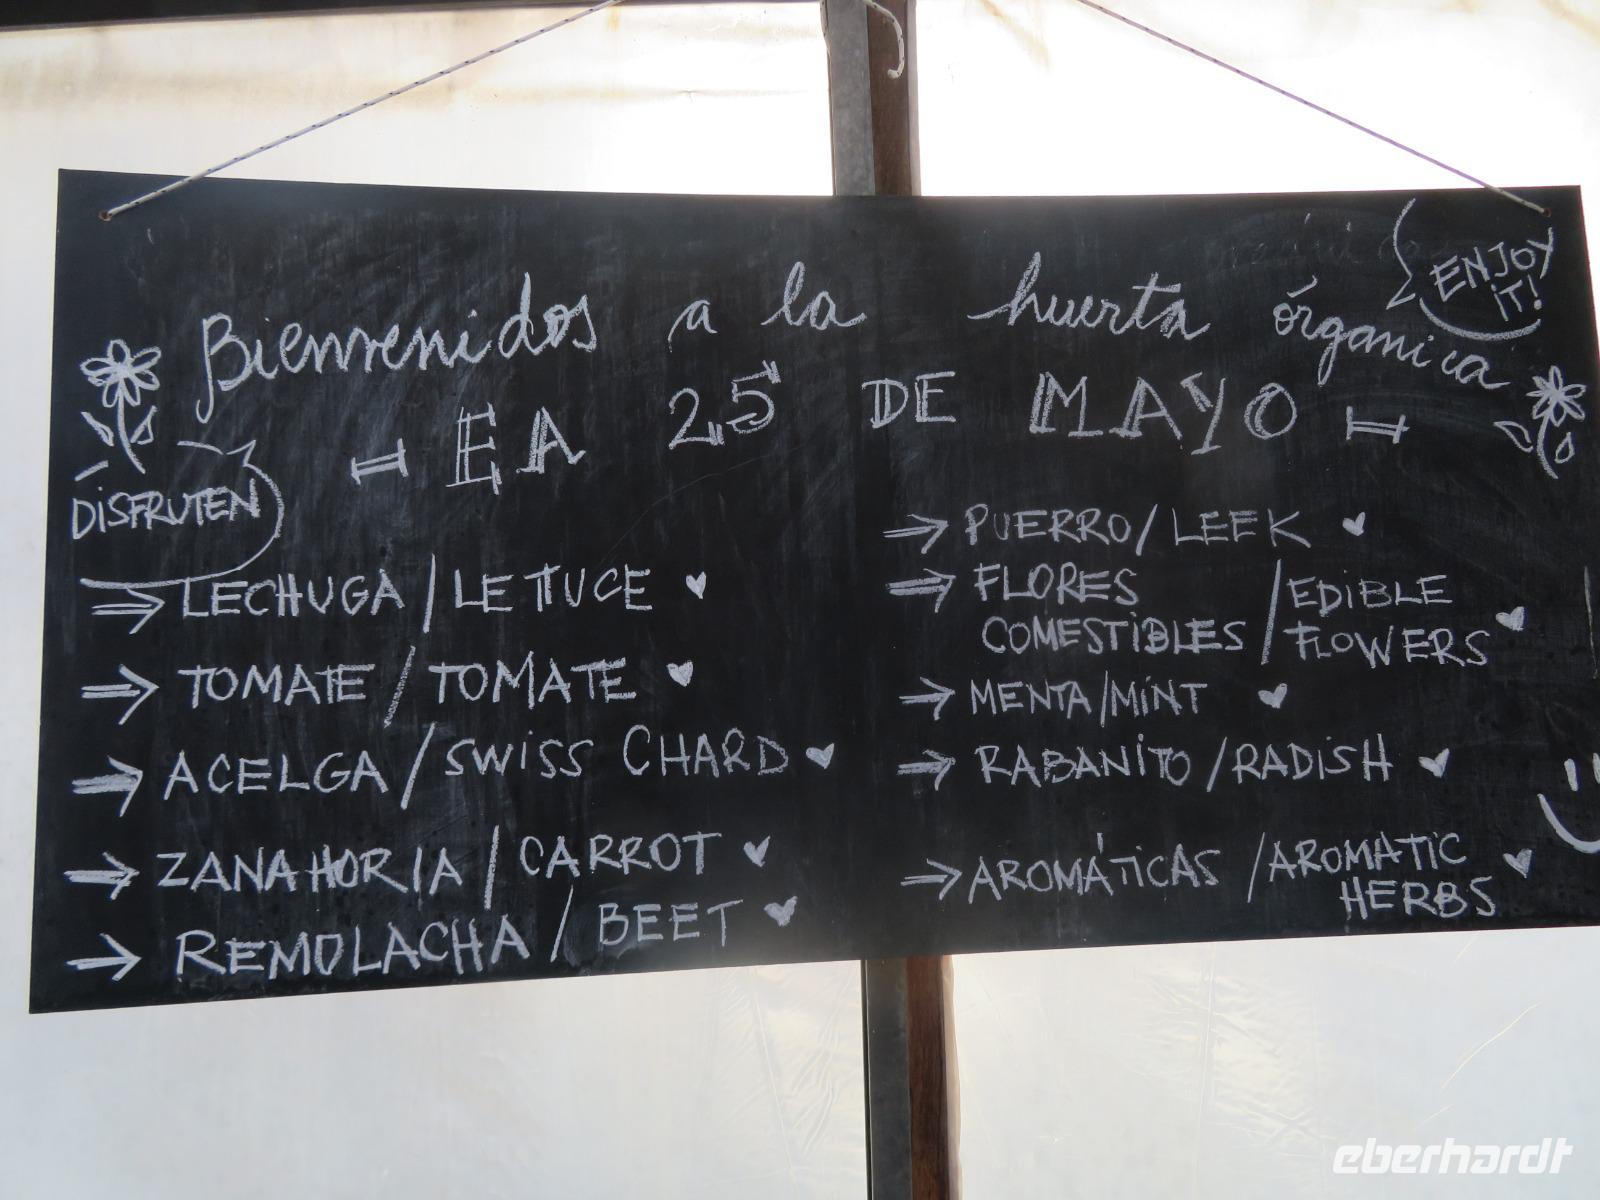 Bienvenidos a la huerta órganica
EA 25 DE MAYO
ENJOY
iT!
DiSFRUTEN
⇒ LECHUGA / LETTUCE ♥
⇒ TOMATE / TOMATE ♥
⇒ ACELGA / SWiSS CHARD ♥
⇒ ZANAHORIA / CARROT ♥
⇒ REMOLACHA / BEET ♥
⇒ PUERRO / LEEK ♥
⇒ FLORES / EDiBLE
COMESTiBLES / FLOWERS ♥
⇒ MENTA / MiNT ♥
⇒ RABANiTO / RADiSH ♥
⇒ AROMÁTiCAS / AROMATiC
HERBS ♥
eberhardt